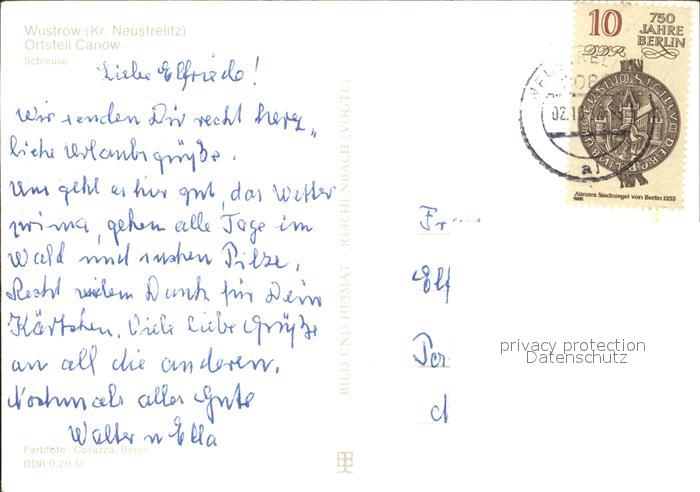 Wustrow (Kr. Neustrelitz)
Ortsteil Canow
Schleuse
Liebe Elfriede!
Wir senden Dir recht herz„
liche Urlaubsgrüße.
Uns geht es hier gut, das Wetter
prima, gehen alle Tage im
Wald und suchen Pilze.
Recht vielen Dank für Dein
Kärtchen. Viele liebe Grüße
an all die anderen.
Nochmals alles Gute
Walter u Ella
Farbfoto: Corazza, Berlin
DDR 0,20 M
BILD UND HEIMAT · REICHENBACH (VOGTL)
10
750
JAHRE
BERLIN
DDR
Ältestes Stadtsiegel von Berlin 1253
1986
02.10
a
Fr
Elf
privacy protection
Datenschutz